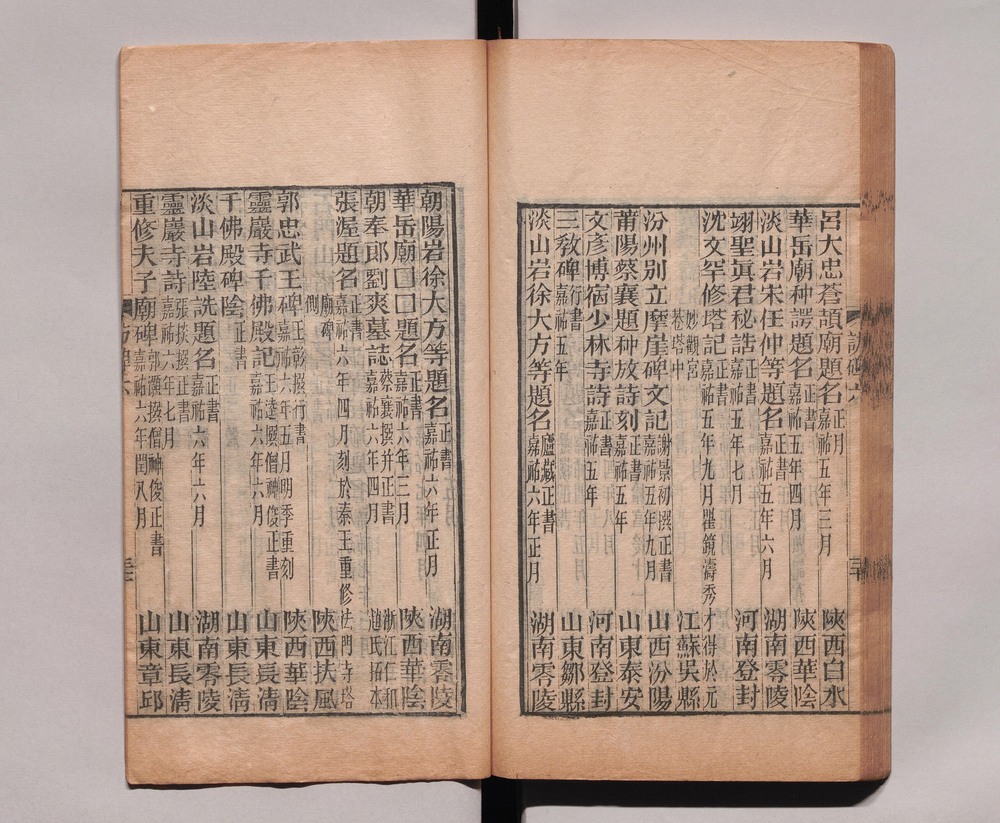 呂大忠蒼頡廟題名 正月 嘉祐五年三月 陝西白水
華岳廟种諤題名 正書 嘉祐五年四月 陝西華陰
淡山岩朱仼仲等題名 正書 嘉祐五年六月 湖南零陵
翊聖眞君秘誥 正書 嘉祐五年七月 河南登封
沈文罕修塔記 正書 嘉祐五年九月 瞿鏡濤秀才得於元
妙觀宮 塔中 江蘇吳縣
汾州别立摩崖碑文記 謝景初撰正書 嘉祐五年九月 山西汾陽
莆陽蔡襄題种放詩刻 正書 嘉祐五年 山東泰安
文彥博宿少林寺詩 正書 嘉祐五年 河南登封
三敎碑 行書 嘉祐五年 山東鄒縣
淡山岩徐大方等題名 盧臧正書 嘉祐六年正月 湖南零陵
朝陽岩徐大方等題名 正書 嘉祐六年正月 湖南零陵
華岳廟囗囗題名 正書 嘉祐六年三月 陝西華陰
朝奉郎劉爽墓誌 蔡襄撰并正書 嘉祐六年四月 浙江仁和趙氏拓本
張渥題名 正書 嘉祐六年四月刻於秦王重修法門寺塔
廟碑側 陝西扶風
郭忠武王碑 王彰撥行書 嘉祐六年五月明季重刻 陝西華陰
靈巖寺千佛殿記 王逵撰僧神俊正書 嘉祐六年六月 山東長淸
千佛殿碑陰 正書 山東長淸
淡山岩陸詵題名 正書 嘉祐六年六月 湖南零陵
靈巖寺詩 張掞撰正書 嘉祐六年七月 山東長淸
重修夫子廟碑 郭灝撥僧神俊正書 嘉祐六年閏八月 山東章邱